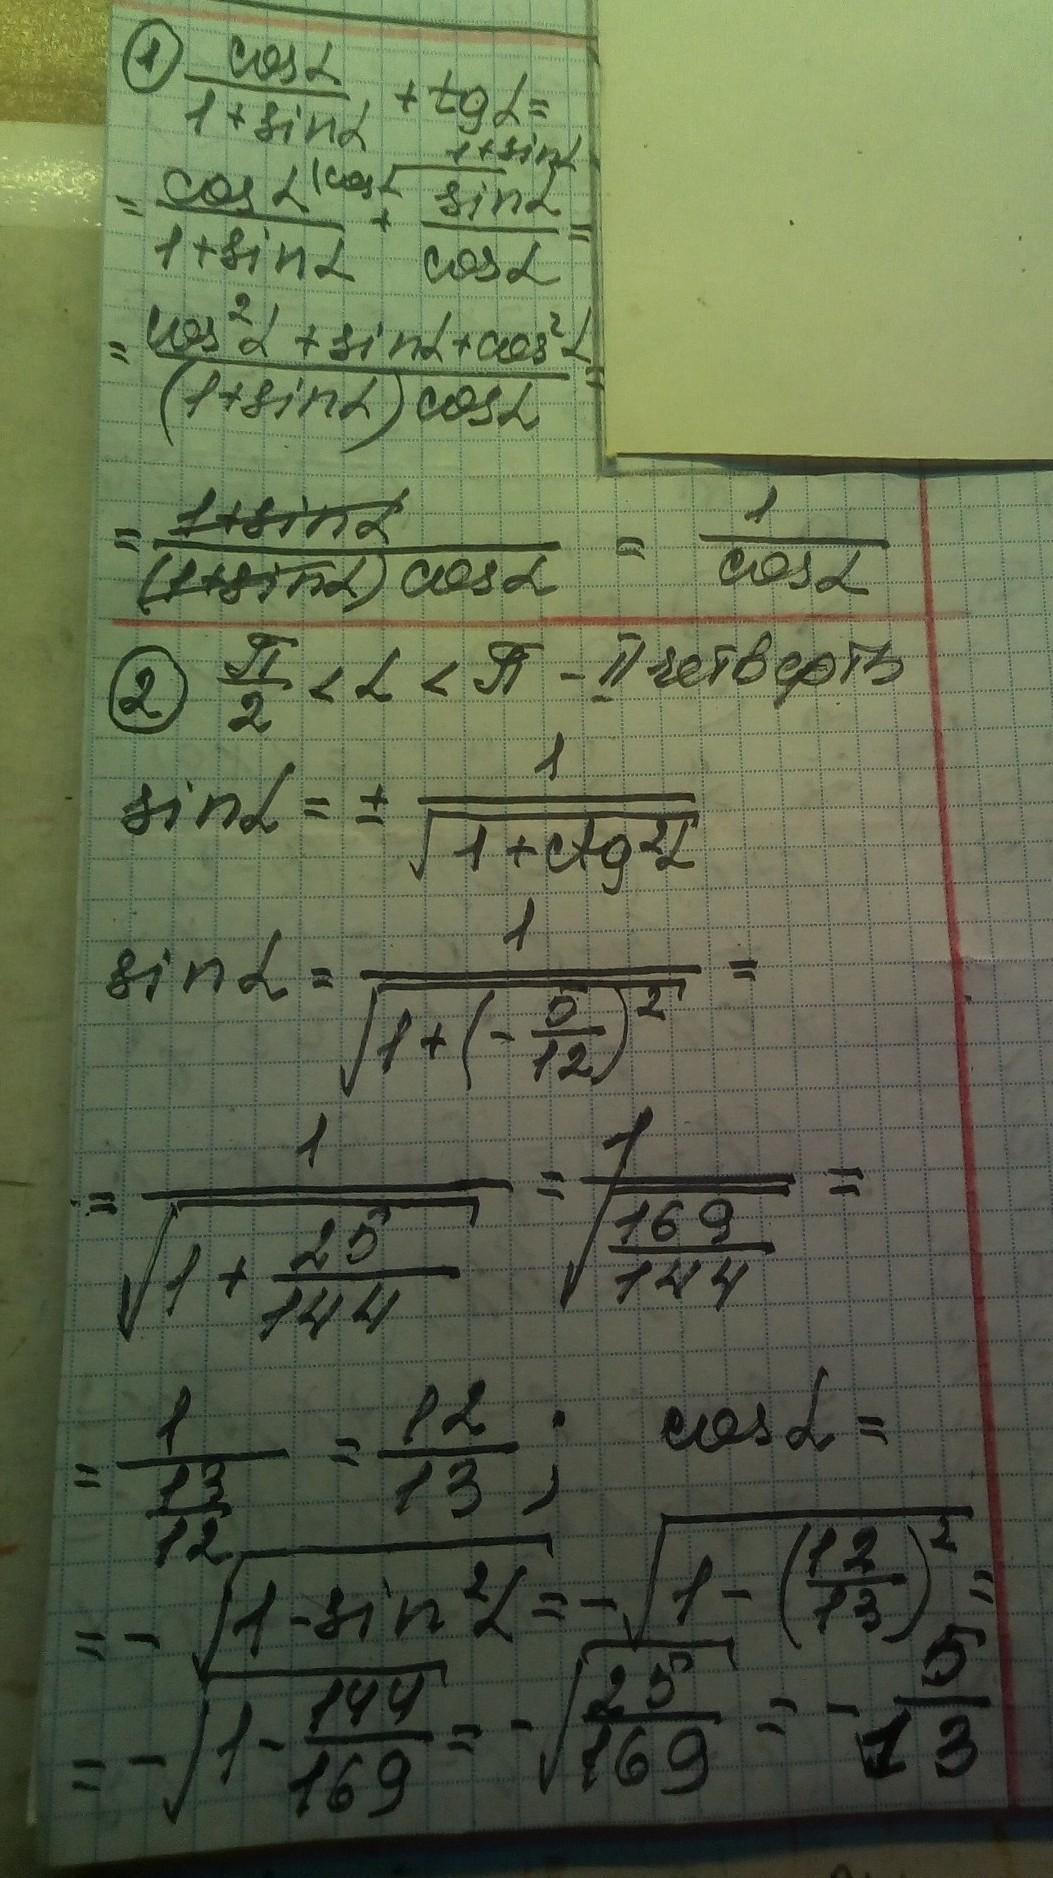 ① cosα/(1+sinα) + tgα =
= cosα (cosα/(1+sinα) + (1+sinα sinα/cosα =
= (cos²α + sinα + cos²α)/((1+sinα)cosα) =
= (1+sinα)/((1+sinα)cosα) = 1/cosα
② π/2 < α < π - II четверть
sinα = ± 1/√(1+ctg²α)
sinα = 1/√(1+(-5/12)²) =
= 1/√(1+25/144) = 1/√(169/144) =
= 1/(13/12) = 12/13 ; cosα =
= -√(1-sin²α) = -√(1-(12/13)²) =
= -√(1-144/169) = -√(25/169) = -5/13